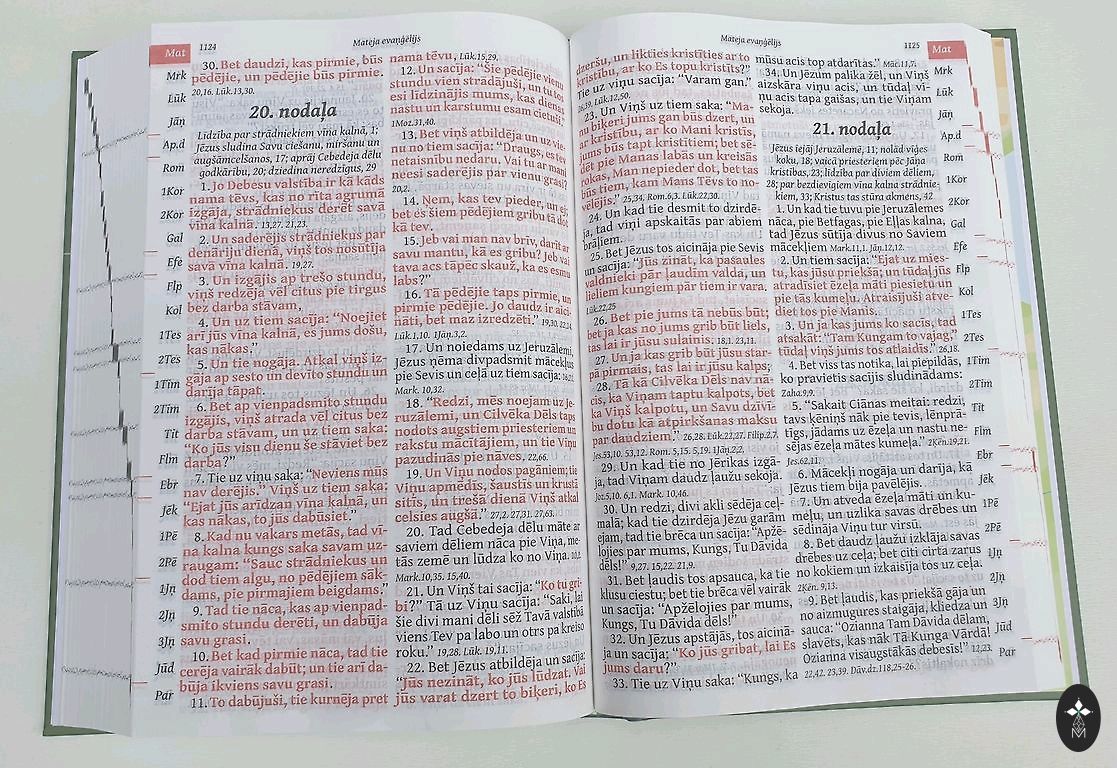 Mat
1124
Mateja evaņģēlijs
30. Bet daudzi, kas pirmie, būs
pēdējie, un pēdējie būs pirmie.
20,16. Lūk.13,30.
20. nodaļa
Līdzība par strādniekiem vīna kalnā, 1;
Jēzus sludina Savu ciešanu, miršanu un
augšāmcelšanos, 17; aprāj Cebedeja dēlu
godkāribu, 20; dziedina neredzīgus, 29
1. Jo Debesu valstība ir kā kāds
nama tēvs, kas no rīta agrumā
izgāja, strādniekus derēt savā
vīna kalnā. 13,27. 21,23.
2. Un saderējis strādniekus par
denāriju dienā, viņš tos nosūtīja
savā vīna kalnā. 19,27.
3. Un izgājis ap trešo stundu,
viņš redzēja vēl citus pie tirgus
bez darba stāvam,
4. Un uz tiem sacīja: “Noejiet
arī jūs vīna kalnā, es jums došu,
kas nākas.”
5. Un tie nogāja. Atkal viņš iz-
gāja ap sesto un devīto stundu un
darīja tāpat.
6. Bet ap vienpadsmito stundu
izgājis, viņš atrada vēl citus bez
darba stāvam, un uz tiem saka:
“Ko jūs visu dienu še stāviet bez
darba?”
7. Tie uz viņu saka: “Neviens mūs
nav derējis.” Viņš uz tiem saka:
“Ejat jūs arīdzan vīna kalnā, un
kas nākas, to jūs dabūsiet.”
8. Kad nu vakars metās, tad vī-
na kalna kungs saka savam uz-
raugam: “Sauc strādniekus un
dod tiem algu, no pēdējiem sāk-
dams, pie pirmajiem beigdams.”
9. Tad tie nāca, kas ap vienpad-
smito stundu derēti, un dabūja
savu grasi.
10. Bet kad pirmie nāca, tad tie
cerēja vairāk dabūt; un tie arī da-
būja ikviens savu grasi.
11. To dabūjuši, tie kurnēja pret
nama tēvu, Lūk.15,29.
12. Un sacīja: “Šie pēdējie vienu
stundu vien strādājuši, un tu tos
esi līdzinājis mums, kas dienas
nastu un karstumu esam cietuši.”
1Moz.31,40.
13. Bet viņš atbildēja un uz vie-
nu no tiem sacīja: “Draugs, es tev
netaisnību nedaru. Vai tu ar mani
neesi saderējis par vienu grasi?
20,2.
14. Ņem, kas tev pieder, un ej;
bet es šiem pēdējiem gribu tā dot
kā tev.
15. Jeb vai man nav brīv, darīt ar
savu mantu, kā es gribu? Jeb vai
tava acs tāpēc skauž, ka es esmu
labs?”
16. Tā pēdējie taps pirmie, un
pirmie pēdējie. Jo daudz ir aici-
nāti, bet maz izredzēti.” 19,30. 22,14.
Lūk.1,10. 1Jāņ.3,2.
17. Un noiedams uz Jeruzālemi,
Jēzus ņēma divpadsmit mācekļus
pie Sevis un ceļā uz tiem sacīja: 16,21.
Mark. 10,32.
18. “Redzi, mēs noejam uz Je-
ruzālemi, un Cilvēka Dēls taps
nodots augstiem priesteriem un
rakstu mācītājiem, un tie Viņu
pazudinās pie nāves, 22,66.
19. Un Viņu nodos pagāniem; tie
Viņu apmēdīs, šaustīs un krustā
sitīs, un trešā dienā Viņš atkal
celsies augšā.” 27,2. 27,31. 27,63.
20. Tad Cebedeja dēlu māte ar
saviem dēliem nāca pie Viņa, me-
tās zemē un lūdza ko no Viņa.
Mark.10,35. 15,40.
21. Un Viņš tai sacīja: “Ko tu gri-
bi?” Tā uz Viņu sacīja: “Saki, lai
šie divi mani dēli sēž Tavā valstībā
viens Tev pa labo un otrs pa kreiso
roku.” 19,28. Lūk. 19,11.
22. Bet Jēzus atbildēja un sacīja:
“Jūs nezināt, ko jūs lūdzat. Vai
jūs varat dzert to biķeri, ko Es
Mateja evaņģēlijs
1125
Mat
dzeršu, un likties kristīties ar to
kristību, ar ko Es topu kristīts?”
Tie uz viņu sacīja: “Varam gan.”
26,39. Lūk.12,50.
23. Un Viņš uz tiem saka: “Ma-
nu biķeri jums gan būs dzert, un
ar kristību, ar ko Mani kristīs,
jums būs tapt kristītiem; bet sē-
dēt pie Manas labās un kreisās
rokas, Man nepieder dot, bet tas
būs tiem, kam Mans Tēvs to no-
vēlējis.” 25,34. Rom.6,3. Lūk.22,30.
24. Un kad tie desmit to dzirdē-
ja, tad viņi apskaitās par abiem
brāļiem.
25. Bet Jēzus tos aicināja pie Sevis
un sacīja: “Jūs zināt, ka pasaules
valdnieki pār ļaudīm valda, un
lieliem kungiem pār tiem ir vara.
Lūk.22,25
26. Bet pie jums tā nebūs būt;
bet ja kas no jums grib būt liels,
tas lai ir jūsu sulainis. 18,1. 23,11.
27. Un ja kas grib būt jūsu star-
pā pirmais, tas lai ir jūsu kalps;
28. Tā kā Cilvēka Dēls nav nā-
cis, ka Viņam taptu kalpots, bet
ka Viņš kalpotu, un Savu dzīvī-
bu dotu kā atpirkšanas maksu
par daudziem.” 26,28. Lūk.22,27. Filip.2,7.
Jes.53,10. 53,12. Rom. 5,15. 5,19. 1Jāņ.2,2.
29. Un kad tie no Jērikas izgā-
ja, tad Viņam daudz ļaužu sekoja.
Joz.5,10. 6,1. Mark. 10,46.
30. Un redzi, divi akli sēdēja ceļ-
malā; kad tie dzirdēja Jēzu garām
ejam, tad tie brēca un sacīja: “Apžē-
lojies par mums, Kungs, Tu Dāvida
dēls!” 9,27. 15,22. 21,9.
31. Bet ļaudis tos apsauca, ka tie
klusu ciestu; bet tie brēca vēl vairāk
un sacīja: “Apžēlojies par mums,
Kungs, Tu Dāvida dēls!”
32. Un Jēzus apstājās, tos aicinā-
ja un sacīja: “Ko jūs gribat, lai Es
jums daru?”
33. Tie uz Viņu saka: “Kungs, ka
mūsu acis top atdarītas.” Māc.11,7.
34. Un Jēzum palika žēl, un Viņš
aizskāra viņu acis, un tūdaļ vi-
ņu acis tapa gaišas, un tie Viņam
sekoja.
21. nodaļa
Jēzus iejāj Jeruzālemē, 11; nolād vīģes
koku, 18; vaicā priesteriem pēc Jāņa
kristības, 23; līdzība par diviem dēliem,
28; par bezdievīgiem vīna kalna strādnie-
kiem, 33; Kristus tas stūra akmens, 42
1. Un kad tie tuvu pie Jeruzālemes
nāca, pie Betfagas, pie Eļļas kalna,
tad Jēzus sūtīja divus no Saviem
mācekļiem Mark.11,1. Jāņ.12,12.
2. Un tiem sacīja: “Ejat uz mies-
tu, kas jūsu priekšā; un tūdaļ jūs
atradīsiet ēzeļa māti piesietu un
pie tās kumeļu. Atraisījuši atve-
diet tos pie Manis.
3. Un ja kas jums ko sacīs, tad
atsakāt: “Tam Kungam to vajag,”
tūdaļ viņš jums tos atlaidīs.” 26,18.
4. Bet viss tas notika, lai piepildās,
ko pravietis sacījis sludinādams:
Zaha.9,9.
5. “Sakait Ciānas meitai: redzi,
tavs ķēniņš nāk pie tevis, lēnprā-
tīgs, jādams uz ēzeļa un nastu ne-
sējas ēzeļa mātes kumeļa.” 2Ķēn.19,21.
Jes.62,11.
6. Mācekļi nogāja un darīja, kā
Jēzus tiem bija pavēlējis.
7. Un atveda ēzeļa māti un ku-
meļu, un uzlika savas drēbes un
sēdināja Viņu tur virsū.
8. Bet daudz ļaužu izklāja savas
drēbes uz ceļa; bet citi cirta zarus
no kokiem un izkaisīja tos uz ceļa.
2Ķēn. 9,13.
9. Bet ļaudis, kas priekšā gāja un
no aizmugures staigāja, kliedza un
sauca: “Ozianna Tam Dāvida dēlam,
slavēts, kas nāk Tā Kunga Vārdā!
Ozianna visaugstākās debesīs!” 12,23.
22,42. 23,39. Dāv.dz.118,25-26.
Mrk
Lūk
Jāņ
Ap.d
Rom
1Kor
2Kor
Gal
Efe
Flp
Kol
1Tes
2Tes
1Tim
2Tim
Tit
Flm
Ebr
Jēk
1Pē
2Pē
1Jņ
2Jņ
3Jņ
Jūd
Par
Mrk
Lūk
Jāņ
Ap.d
Rom
1Kor
2Kor
Gal
Efe
Flp
Kol
1Tes
2Tes
1Tim
2Tim
Tit
Flm
Ebr
Jēk
1Pē
2Pē
1Jņ
2Jņ
3Jņ
Jūd
Par